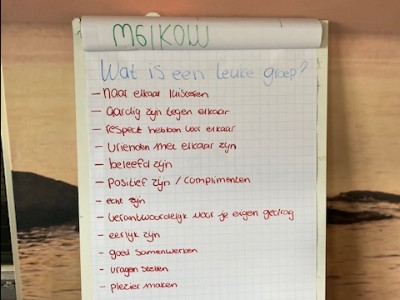 Welkom
Wat is een leuke groep?
- naar elkaar luisteren
- aardig zijn tegen elkaar
- respect hebben voor elkaar
- vrienden met elkaar zijn
- beleefd zijn
- positief zijn / complimenten
- echt zijn
- verantwoordelijk voor je eigen gedrag
- eerlijk zijn
- goed samenwerken
- vragen stellen
- plezier maken